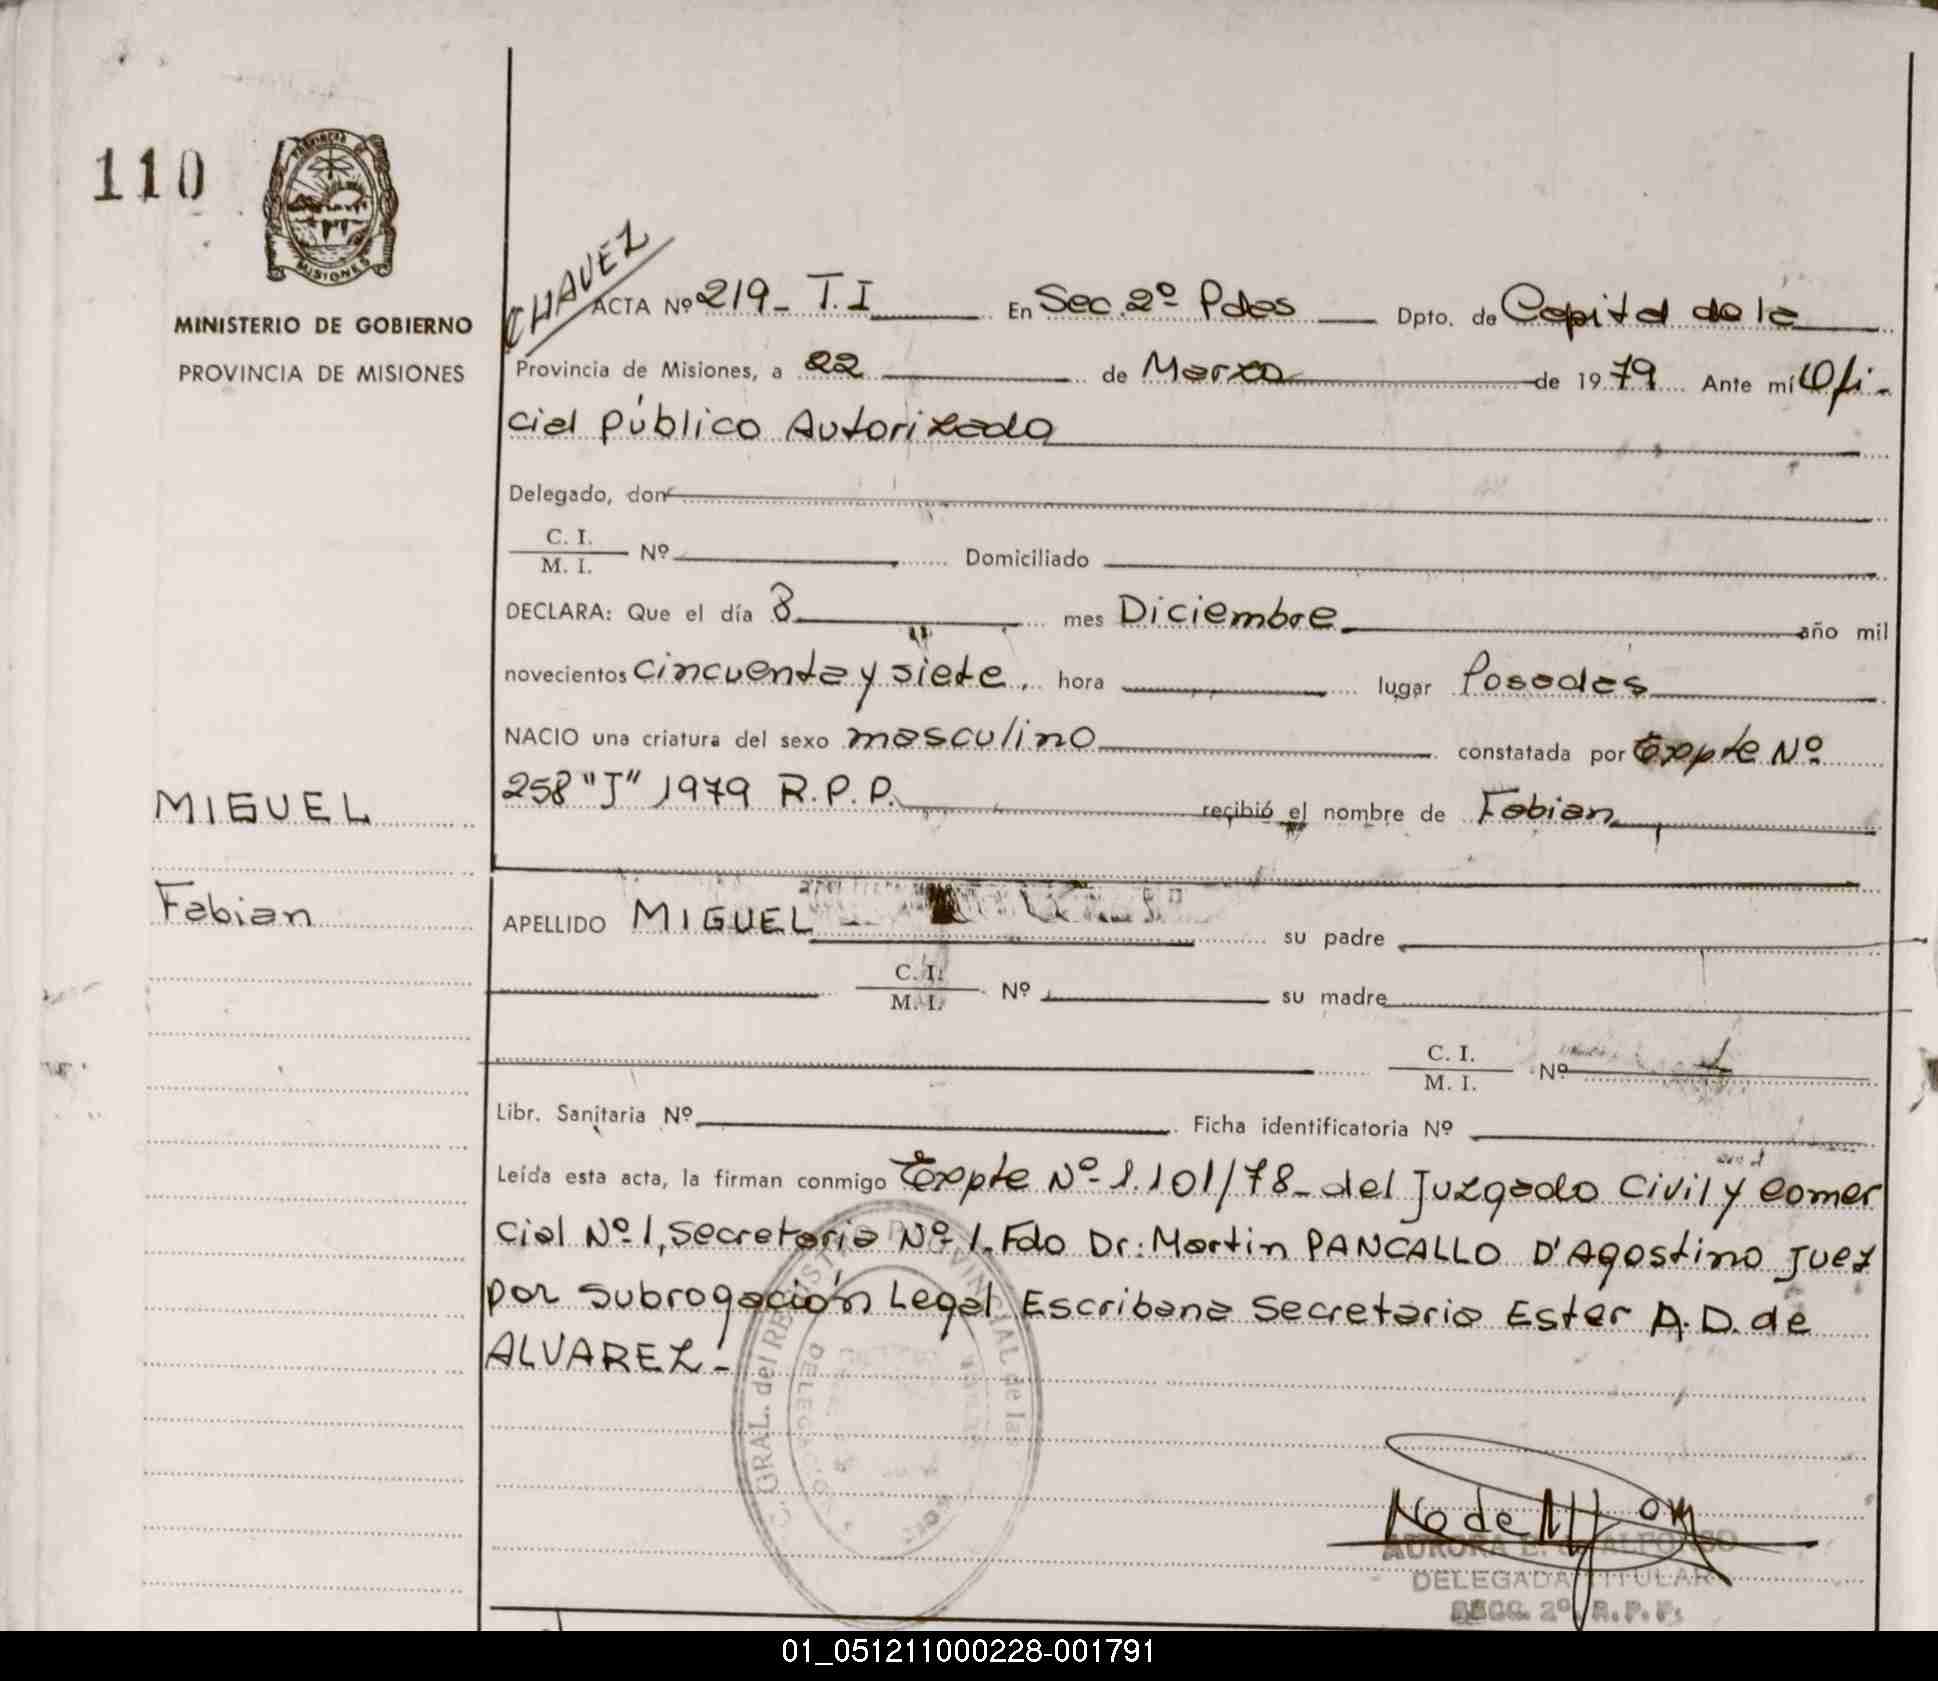 110
PROVINCIA DE
MISIONES
MINISTERIO DE GOBIERNO
PROVINCIA DE MISIONES
MIGUEL
Fabian
CHAVEZ
ACTA Nº 219 - T. I En Sec. 2º Pdas Dpto. de Capital de la
Provincia de Misiones, a 22 de Marzo de 1979 Ante mí Ofi-
cial Público Autorizado
Delegado, don
C. I.
M. I. Nº Domiciliado
DECLARA: Que el día 8 mes Diciembre año mil
novecientos cincuenta y siete. hora lugar Posadas
NACIO una criatura del sexo masculino constatada por Expte Nº
258 "J" 1979 R. P. P. recibió el nombre de Fabian
APELLIDO MIGUEL su padre
C. I.
M. I. Nº su madre
C. I.
M. I. Nº
Libr. Sanitaria Nº Ficha identificatoria Nº
Leída esta acta, la firman conmigo Expte Nº 1.101/78 - del Juzgado Civil y Comer
cial Nº 1, Secretaria Nº 1. Fdo Dr: Martin PANCALLO D'Agostino Juez
por subrogación Legal Escribana Secretaria Ester A. D. de
ALVAREZ -
GRAL. del REGISTRO PROVINCIAL de las
DELEGACION
AURORA ALFONSO
DELEGADA TITULAR
SECC. 2º R. P. P.
01_051211000228-001791